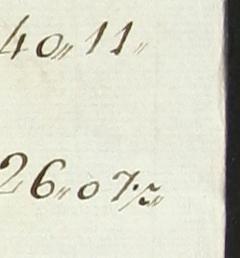 40 „ 11 „
26 „ 07½ „